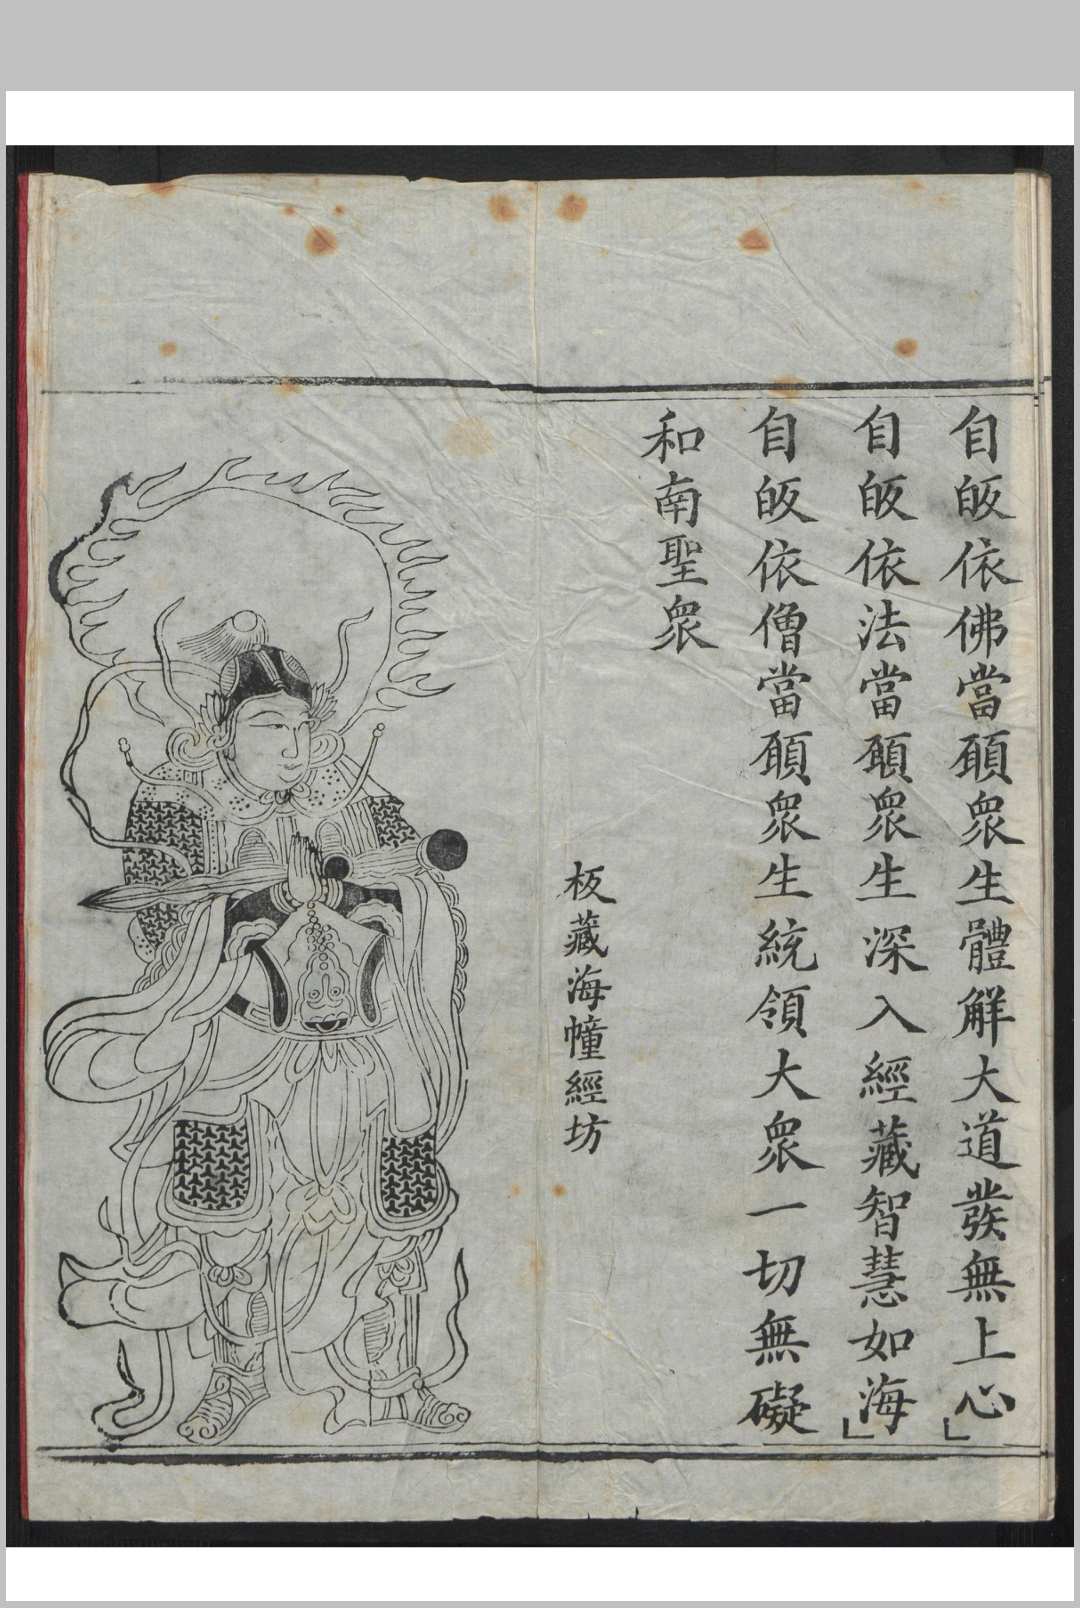 自皈依佛當願眾生體解大道發無上心
自皈依法當願眾生深入經藏智慧如海
自皈依僧當願眾生統領大眾一切無礙
和南聖眾
板藏海幢經坊